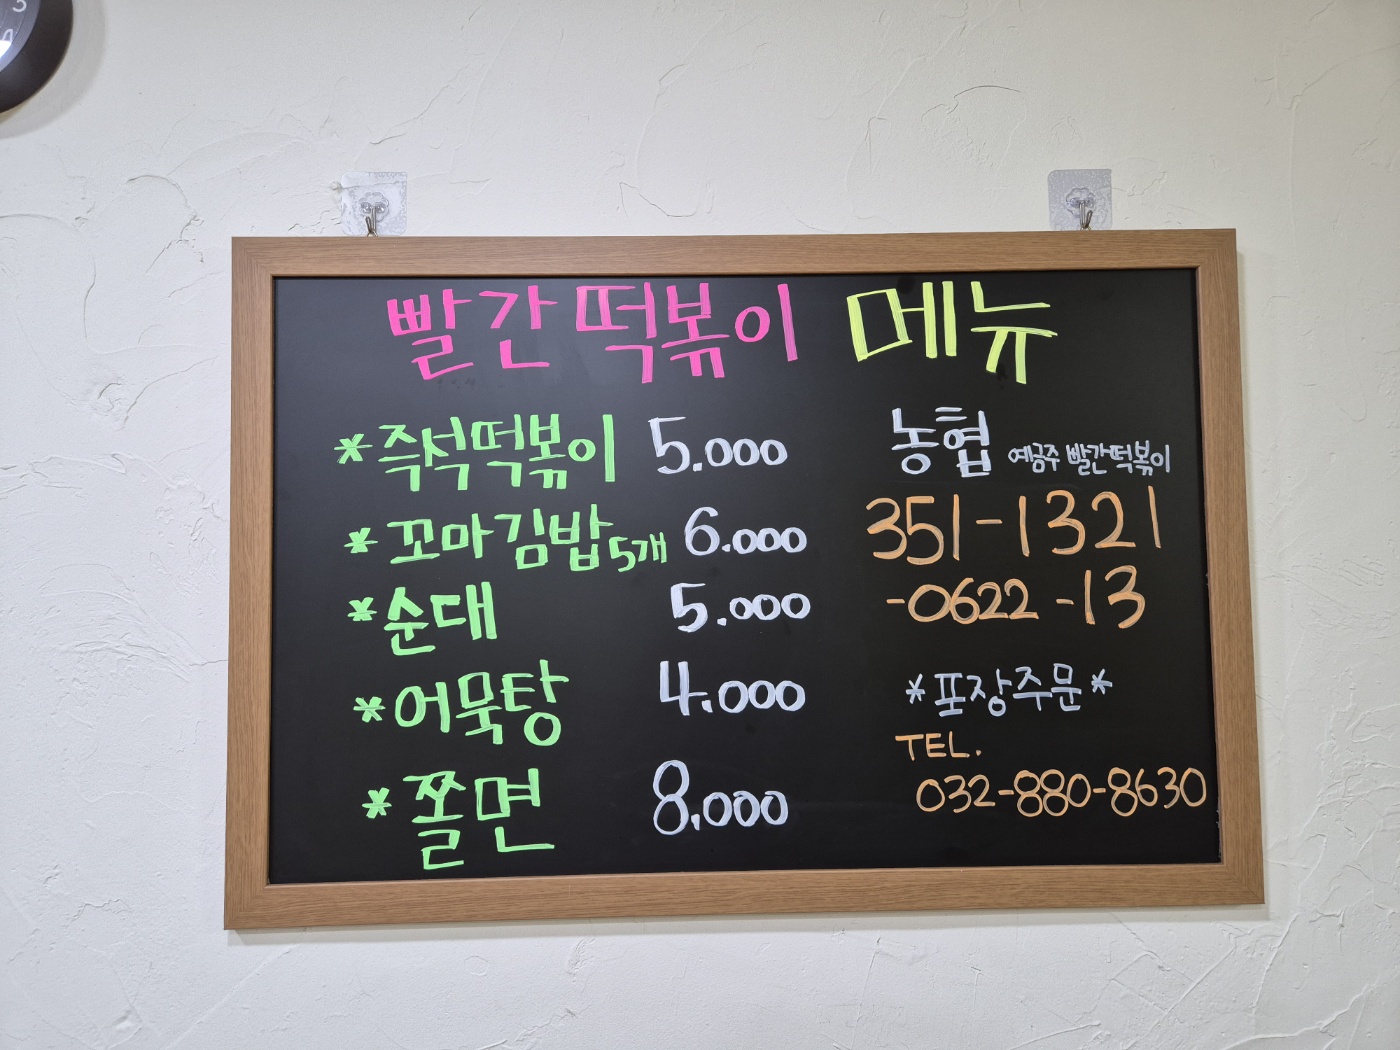 빨간떡볶이 메뉴
*즉석떡볶이 5.000
*꼬마김밥5개 6.000
*순대 5.000
*어묵탕 4.000
*쫄면 8.000
농협 예금주 빨간떡볶이
351-1321
-0622-13
*포장주문*
TEL.
032-880-8630